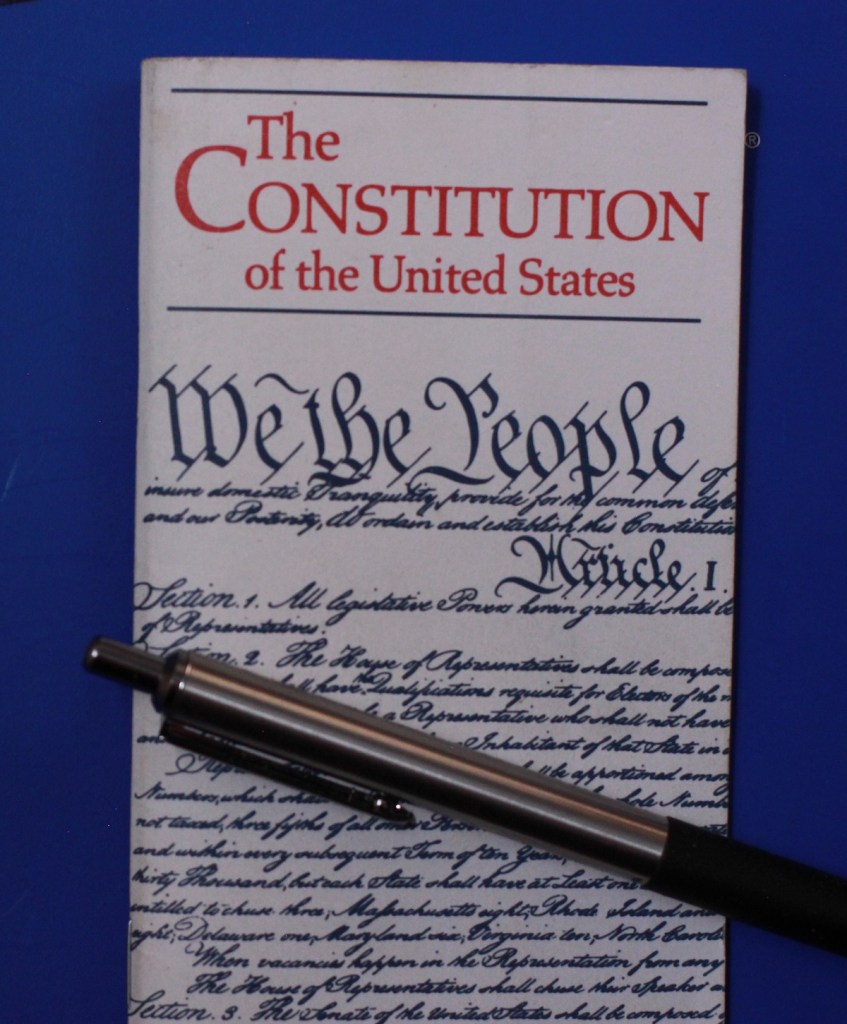 The
CONSTITUTION
of the United States
®
We the People of
insure domestic Tranquility, provide for the common defen
and our Posterity, do ordain and establish this Constitution
Article I.
Section. 1. All legislative Powers herein granted shall be
of Representatives.
2. The House of Representatives shall be compose
have the Qualifications requisite for Electors of the
a Representative who shall not have
Inhabitant of that State in
be apportioned among
Numbers, which Numb
not taxed, three fifths of all
and within every subsequent Term of ten
thirty Thousand, but each State shall have at Least one
entitled to chuse three, Massachusetts eight, Rhode Island and
eight, Delaware one, Maryland six, Virginia ten, North Carol
When vacancies happen in the Representation from any
The House of Representatives shall chuse their Speaker a
Section. 3. The Senate of the United States shall be composed